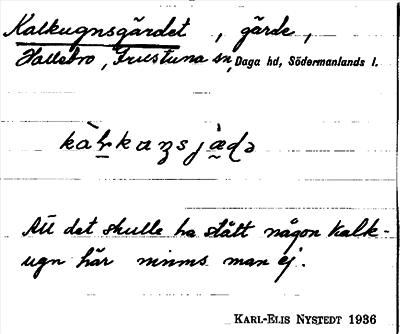 Kalkugnsgärdet, gärde,
Hallebro, Frustuna sn, Daga hd, Södermanlands l.
Att det skulle ha stått någon kalk-
ugn här minns man ej.
KARL-ELIS NYSTEDT 1936